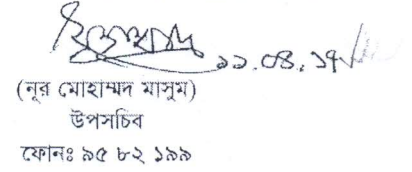 ১১.০৪.১৭
(নূর মোহাম্মদ মাসুম)
উপসচিব
ফোনঃ ৯৫ ৮২ ১৯৯